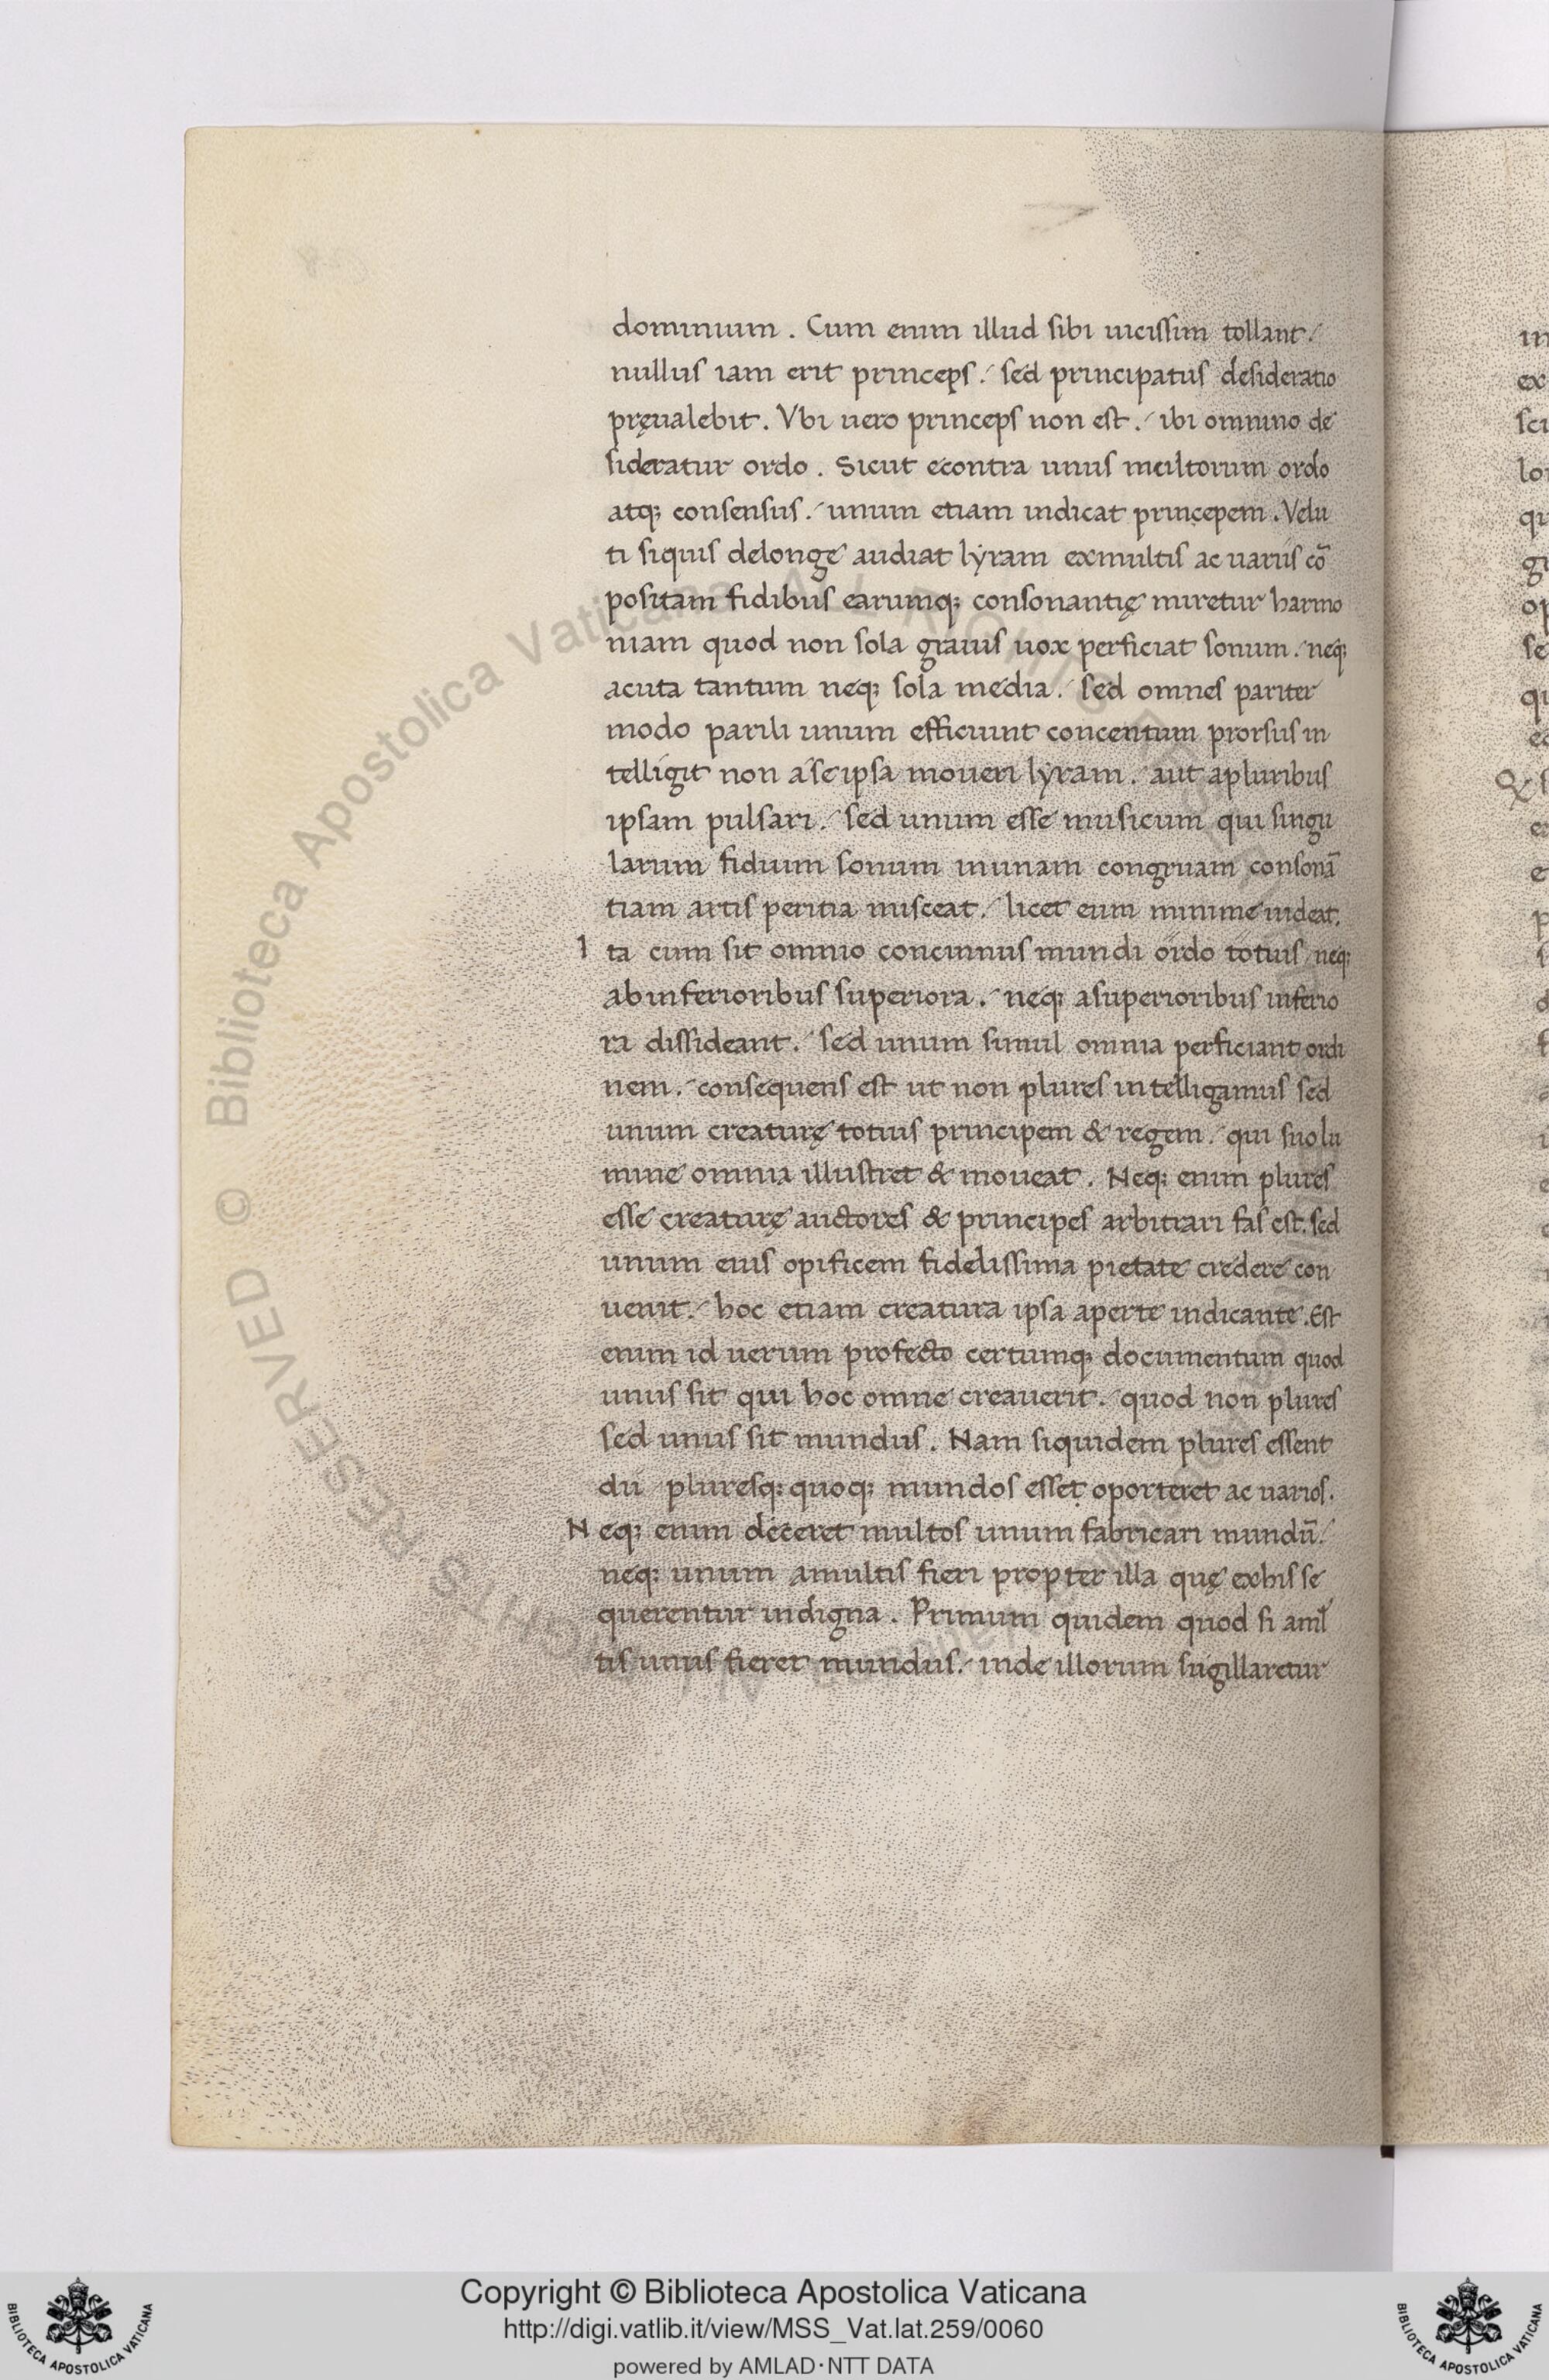 dominium . Cum enim illud sibi uicissim tollant ./
nullus iam erit princeps ./ sed principatus desideratio
pręualebit . Vbi uero princeps non est ./ ibi omnino de
sideratur ordo . Sicut econtra unus multorum ordo
atq; consensus ./ unum etiam indicat principem . Velu
ti siquis delonge audiat lyram exmultis ac uariis cō
positam fidibus earumq; consonantię miretur harmo
niam quod non sola grauis uox perficiat sonum ./ neq;
acuta tantum neq; sola media ./ sed omnes pariter
modo parili unum efficiunt concentum prorsus in
telligit non aseipsa moueri lyram ./ aut apluribus
ipsam pulsari ./ sed unum esse musicum qui singu
larum fidium sonum inunam congruam consonā
tiam artis peritia misceat ./ licet eum minime uideat.
I ta cum sit omnio concinnus mundi ordo totius / neq;
abinferioribus superiora ./ neq; asuperioribus inferio
ra dissideant ./ sed unum simul omnia perficiant ordi
nem ./ consequens est ut non plures intelligamus sed
unum creaturę totius principem & regem ./ qui suo lu
mine omnia illustret & moueat . Neq; enim plures
esse creaturę auctores & principes arbitrari fas est . sed
unum eius opificem fidelissima pietate credere con
uenit ./ hoc etiam creatura ipsa aperte indicante . Est
enim id uerum profecto certumq; documentum quod
unus sit qui hoc omne creauerit ./ quod non plures
sed unus sit mundus . Nam siquidem plures essent
dii / pluresq; quoq; mundos esset oporteret ac uarios .
N eq; enim deceret multos unum fabricari mundū ./
neq; unum amultis fieri propter illa quę exhis se
querentur indigna . Primum quidem quod si aml̄
tis unus fieret mundus ./ inde illorum sugillaretur
© Biblioteca Apostolica Vaticana
Copyright © Biblioteca Apostolica Vaticana
http://digi.vatlib.it/view/MSS_Vat.lat.259/0060
powered by AMLAD·NTT DATA
BIBLIOTECA APOSTOLICA VATICANA
BIBLIOTECA APOSTOLICA VATICANA